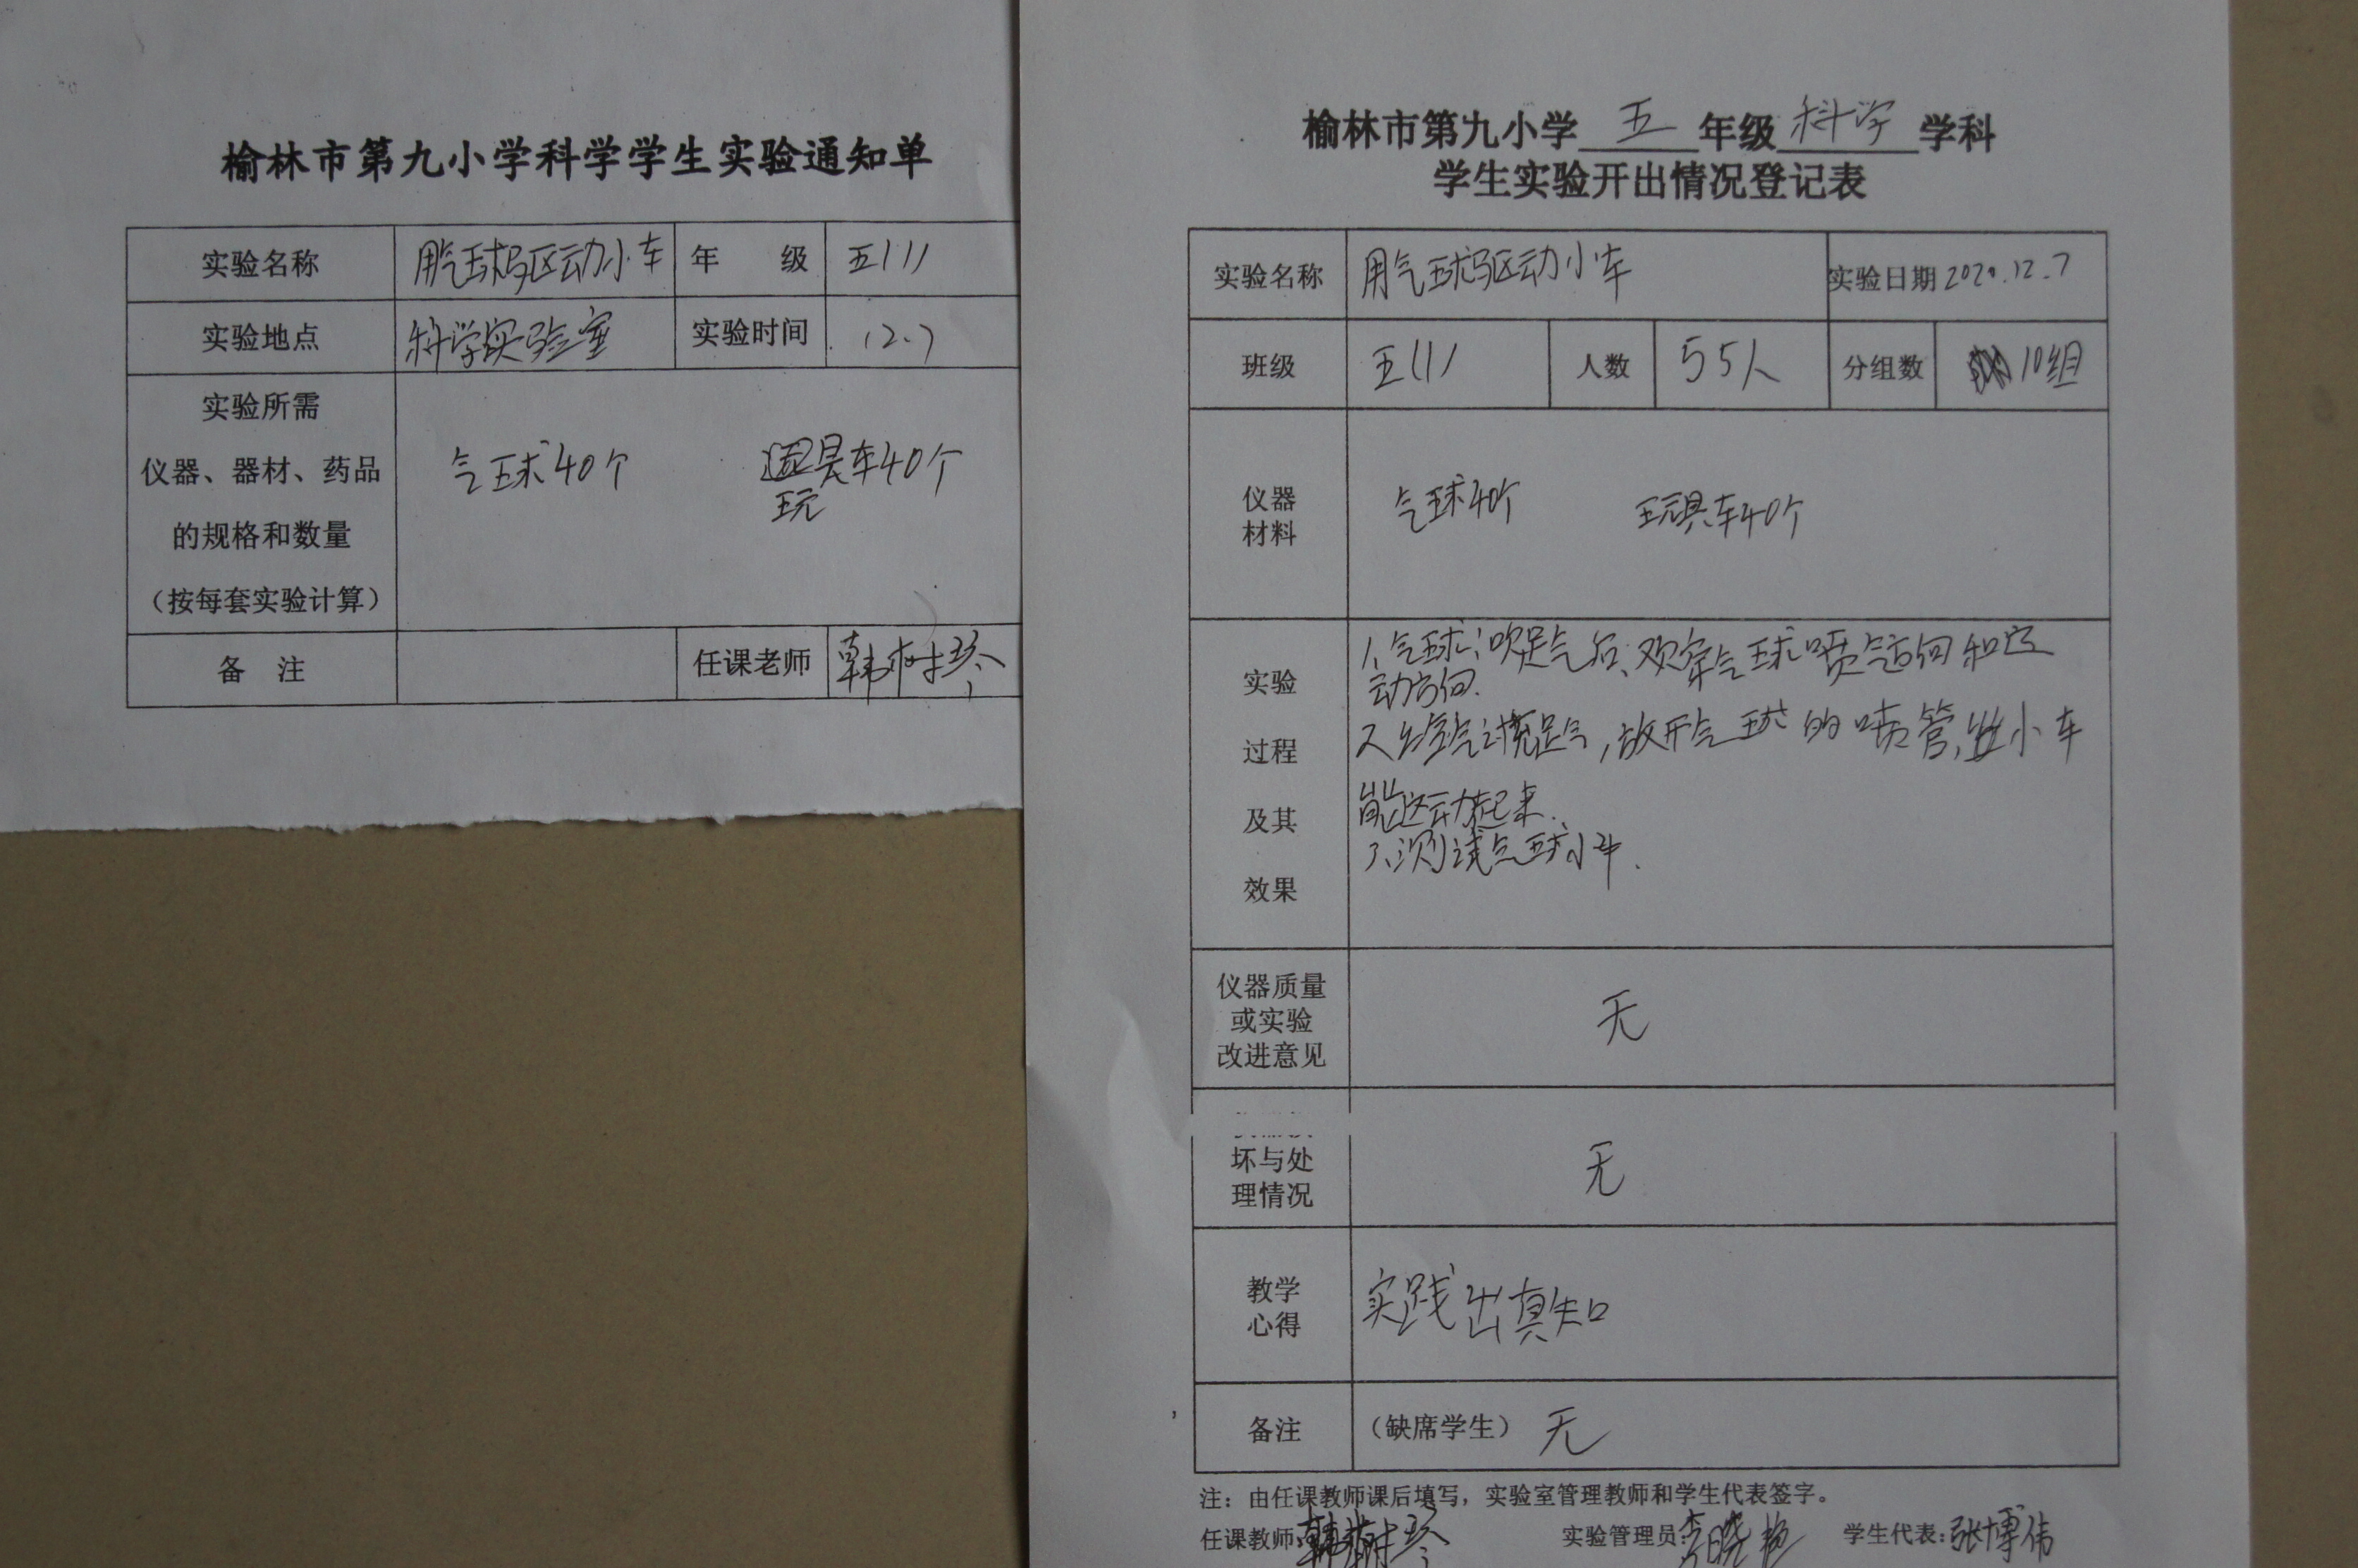 榆林市第九小学科学学生实验通知单
实验名称 用气球驱动小车 年 级 五(1)
实验地点 科学实验室 实验时间 12.7
实验所需
仪器、器材、药品
的规格和数量
（按每套实验计算）
气球40个 具车40个
玩
备 注 任课老师 韩树琴
榆林市第九小学 五 年级 科学 学科
学生实验开出情况登记表
实验名称 用气球驱动小车 实验日期 2020.12.7
班级 五(1) 人数 55人 分组数 10组
仪器
材料
气球40个 玩具车40个
实验
过程
及其
效果
1、气球吹足气后,观察气球喷气方向和运
动方向.
2、给气球充足气,放开气球的喷管,让小车
能运动起来.
3、测试气球小车.
仪器质量
或实验
改进意见
无
坏与处
理情况
无
教学
心得
实践出真知
备注 （缺席学生） 无
注：由任课教师课后填写，实验室管理教师和学生代表签字。
任课教师：韩树琴 实验管理员：李晓艳 学生代表：张博伟